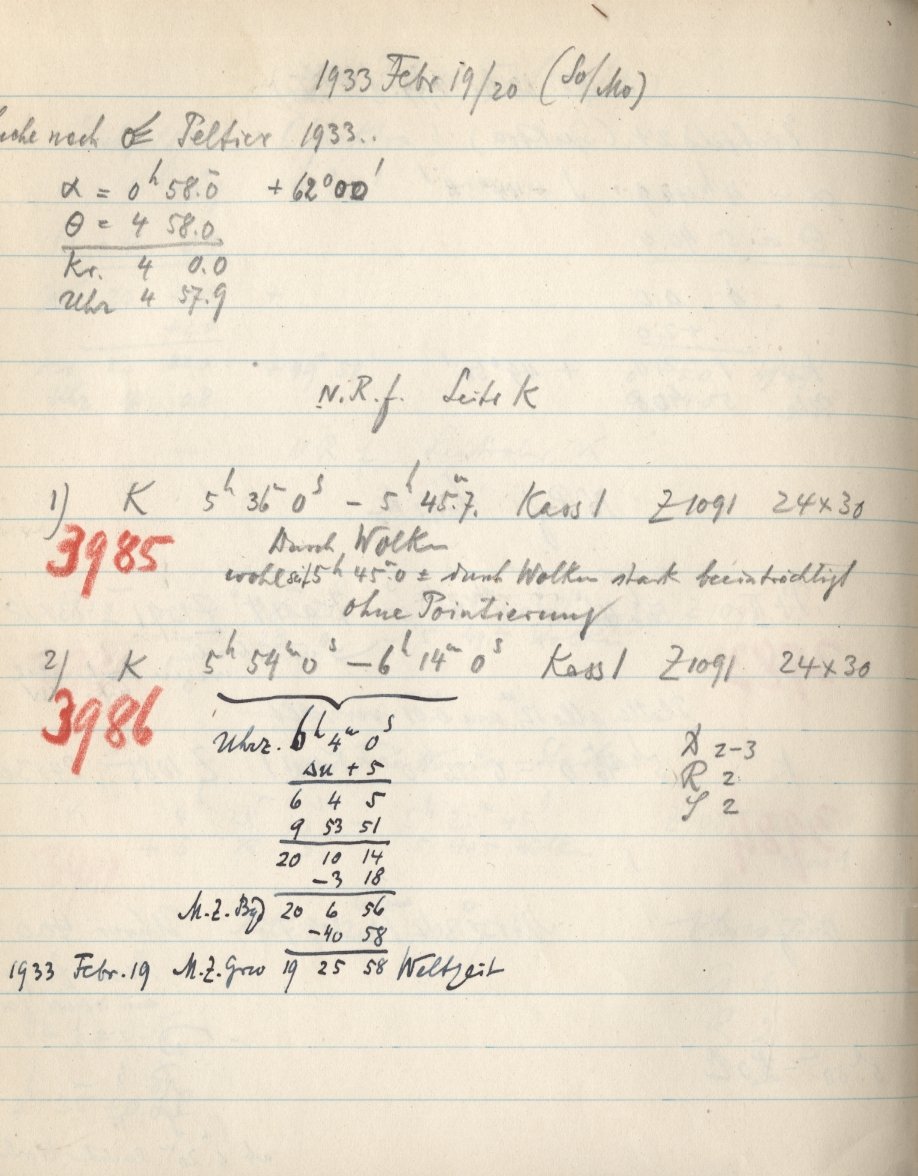 1933 Febr 19/20 (So/Mo)
nach Peltier 1933..
α = 0h 58.0m + 62°00'
Θ = 4 58.0
Kr. 4 0.0
Uhr 4 57.9
N.R.f. Seite K
1) K 5h 36m 0s – 5h 45m.7. Kass 1 Z1091 24x30
3985 Durch Wolken
wohl seit 5h 45m.0 ± durch Wolken stark beeinträchtigt
ohne Pointierung
2) K 5h 54m 0s – 6h 14m 0s Kass 1 Z1091 24x30
3986
Uhrz. 6h 4m 0s
Δu + 5
6 4 5
9 53 51
20 10 14
-3 18
M.Z. Bgd 20 6 56
-40 58
1933 Febr. 19 M.Z. Grw 19 25 58 Weltzeit
D 2-3
R 2
S 2